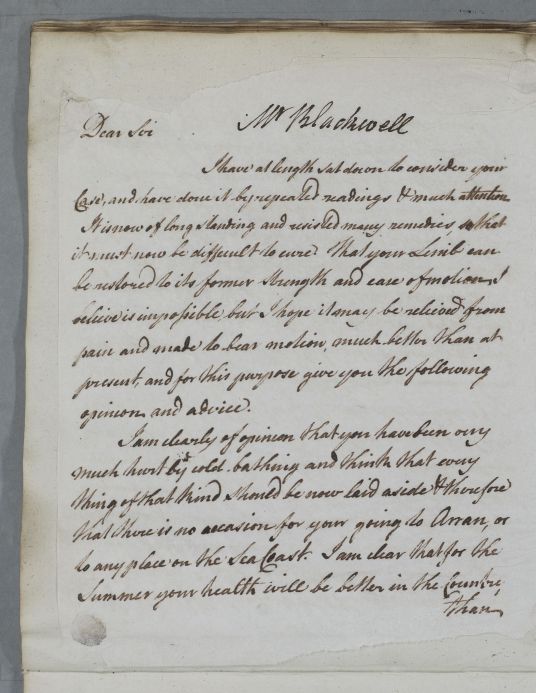 Mr Blackwell
Dear Sir
I have at length sat down to consider your
Case, and have done it by repeated readings & much attention
It is now of long standing and resisted many remedies, so that
it must now be difficult to cure. That your Limb can
be restored to its former strength and ease of motion, I
believe is impossible, but I hope it may be relieved from
pain and made to bear motion, much better than at
present, and for this purpose give you the following
opinion and advice.
I am clearly of opinion that you have been very
much hurt by cold bathing and think that every
thing of that kind should be now laid aside & therefore
that there is no occasion for your going to Arran, or
to any place on the Sea Coast. I am clear that for the
Summer your health will be better in the Countrie,
than